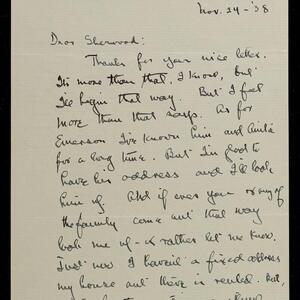 Nov. 24 - '38
Dear Sherwood:
Thanks for your nice letter.
It's more than that, I know, but
I'll begin that way. But I feel
more than that says. As for
Emerson I've known him and Anita
for a long time. But I'm glad to
have his address and I'll look
him up. And if ever you or any of
the family come out that way
look me up - or rather let me know.
Just now I haven't a fixed address
my house out there is rented. But,